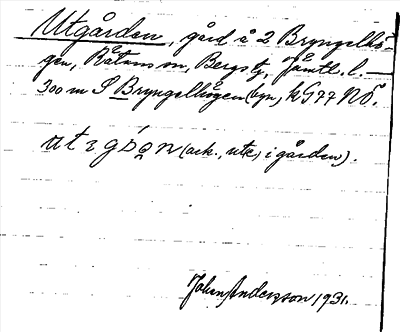 Utgården, gård å 2 Bryngelhö-
gen, Råtans sn, Bergs tg, Jämtl. l. —
300 m S Bryngelhögen (byn), kG77 NÖ.
(ack., ute, i gården).
Johan Andersson 1931.